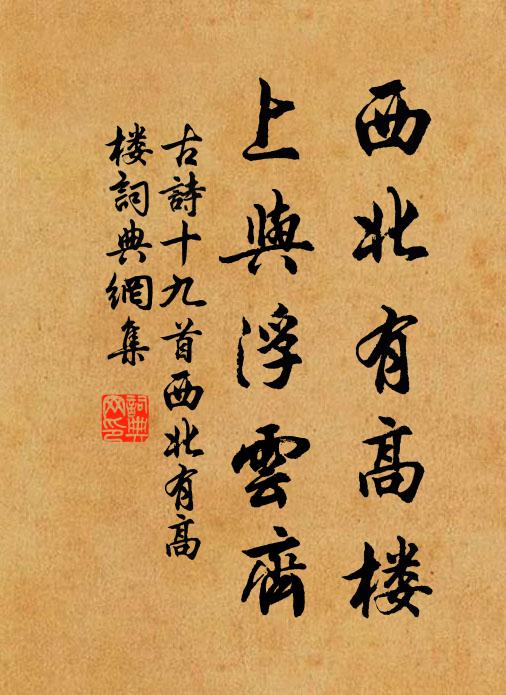 西北有高楼
上與浮雲齊
古詩十九首西北有高
楼詞典網集
詞典網印